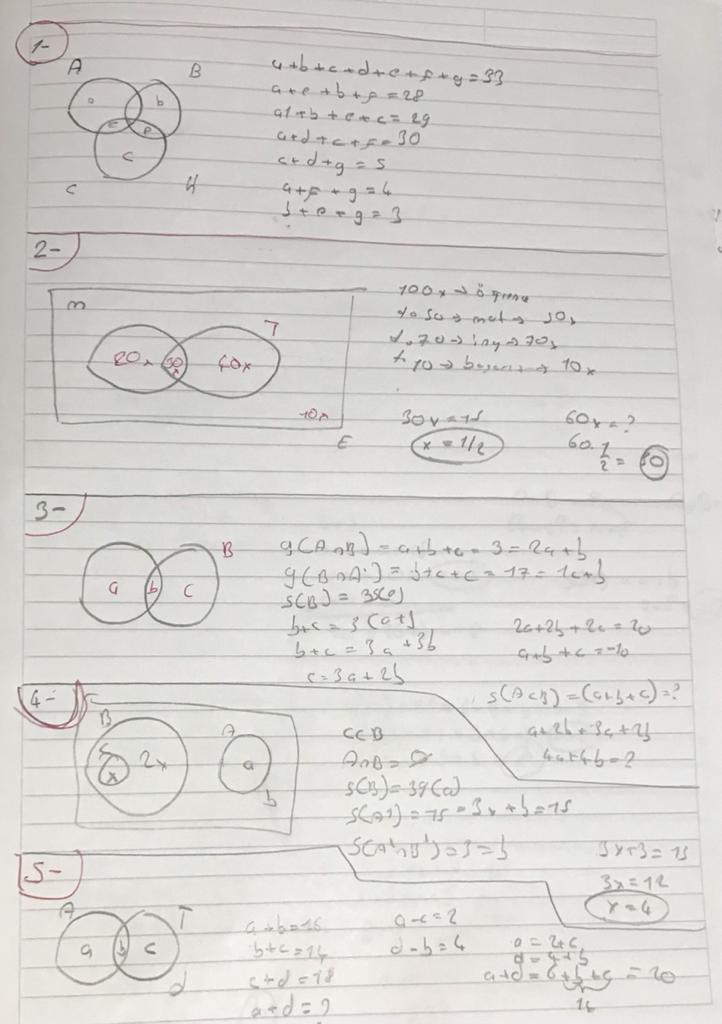 1-
A B
a b
e
c
C H
a+b+c+d+e+f+g=33
a+e+b+f=28
a+b+e+c=29
a+d+c+f=30
c+d+g=5
a+f+g=4
b+e+g=3
2-
m T
20x 30x 40x
10x
E
100x→öğrenci
%50→mat→50x
%70→ing→70x
%10→ →10x
30x=15 60x=?
x=1/2 60.1/2=30
3-
B
a b c
s(B)=3s(a)
b+c=3(a+b)
b+c=3a+3b
c=3a+2b
2a+2b+2c=20
a+b+c=10
s(A∪B)=(a+b+c)=?
a+2b+3a+2b
4a+4b=?
4-
B A
C 2x a
x b
C⊂B
A∩B=∅
s(A')=15=3x+b=15
s(A'∩B')=3=b
3x+3=15
3x=12
x=4
5-
A T
a b c
d
a+b=16
b+c=14
c+d=18
a+d=?
a-c=2
d-b=4
a=2+c
d=4+b
a+d=6+b+c=20
14